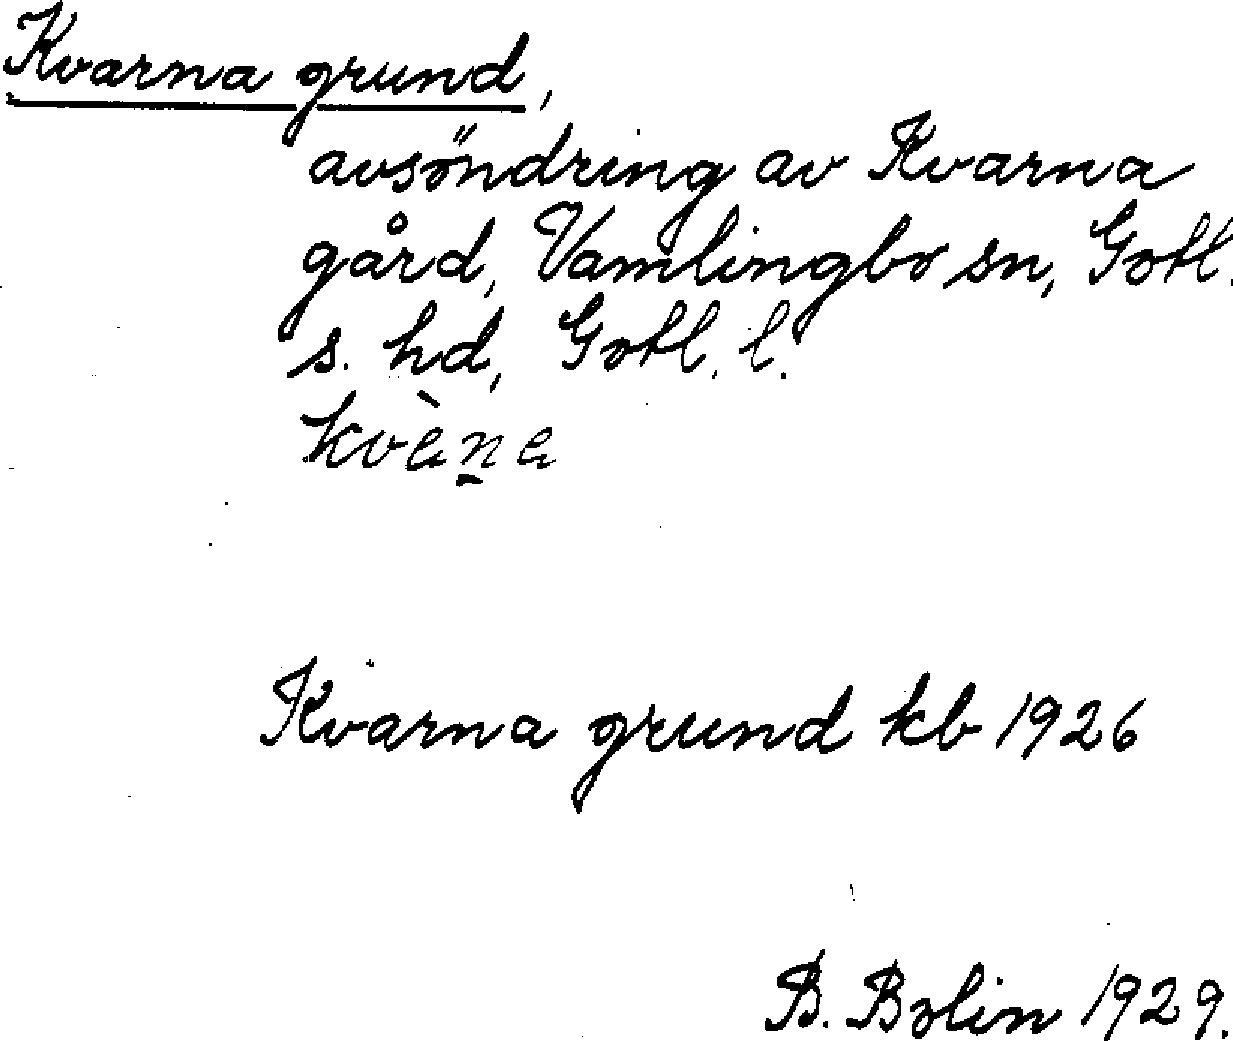 Kvarna grund,
avsöndring av Kvarna
gård, Vamlingbo sn, Gotl.
s. hd, Gotl. l.
kvàn̠a
Kvarna grund kb 1926
B. Bolin 1929.